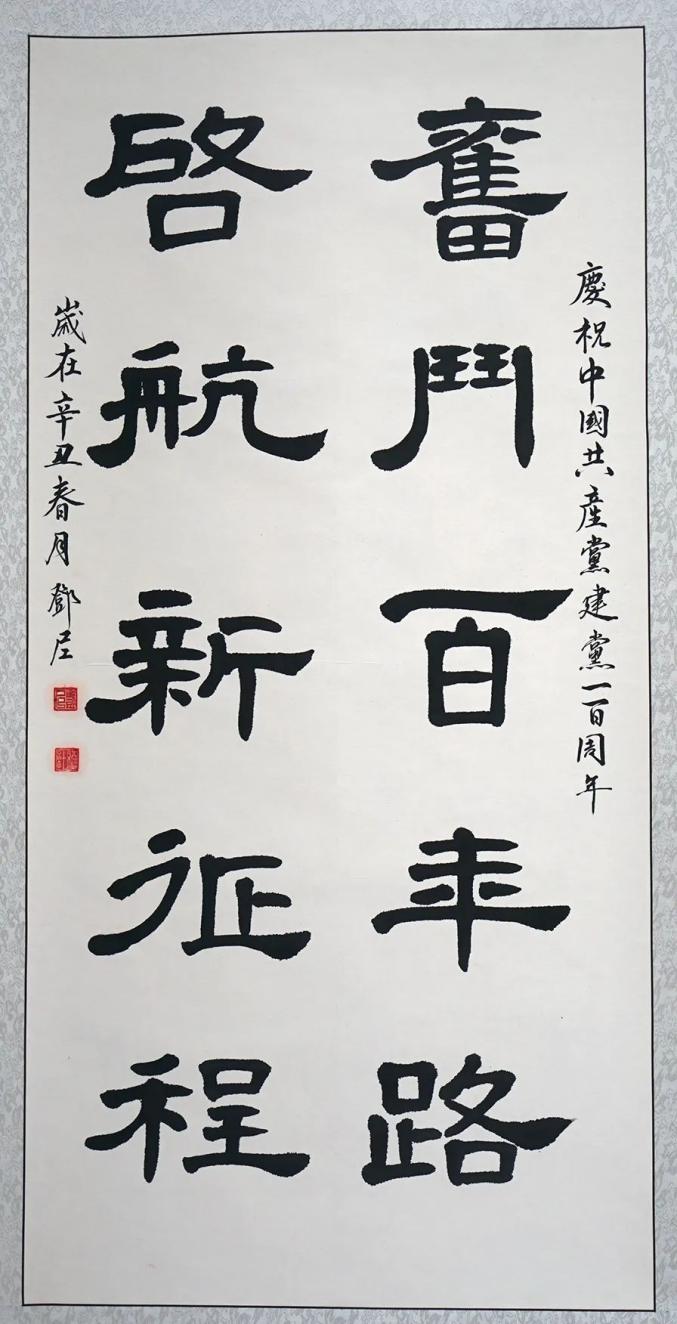 慶祝中國共產黨建黨一百周年
奮鬥百年路
啓航新征程
歲在辛丑春月 鄧